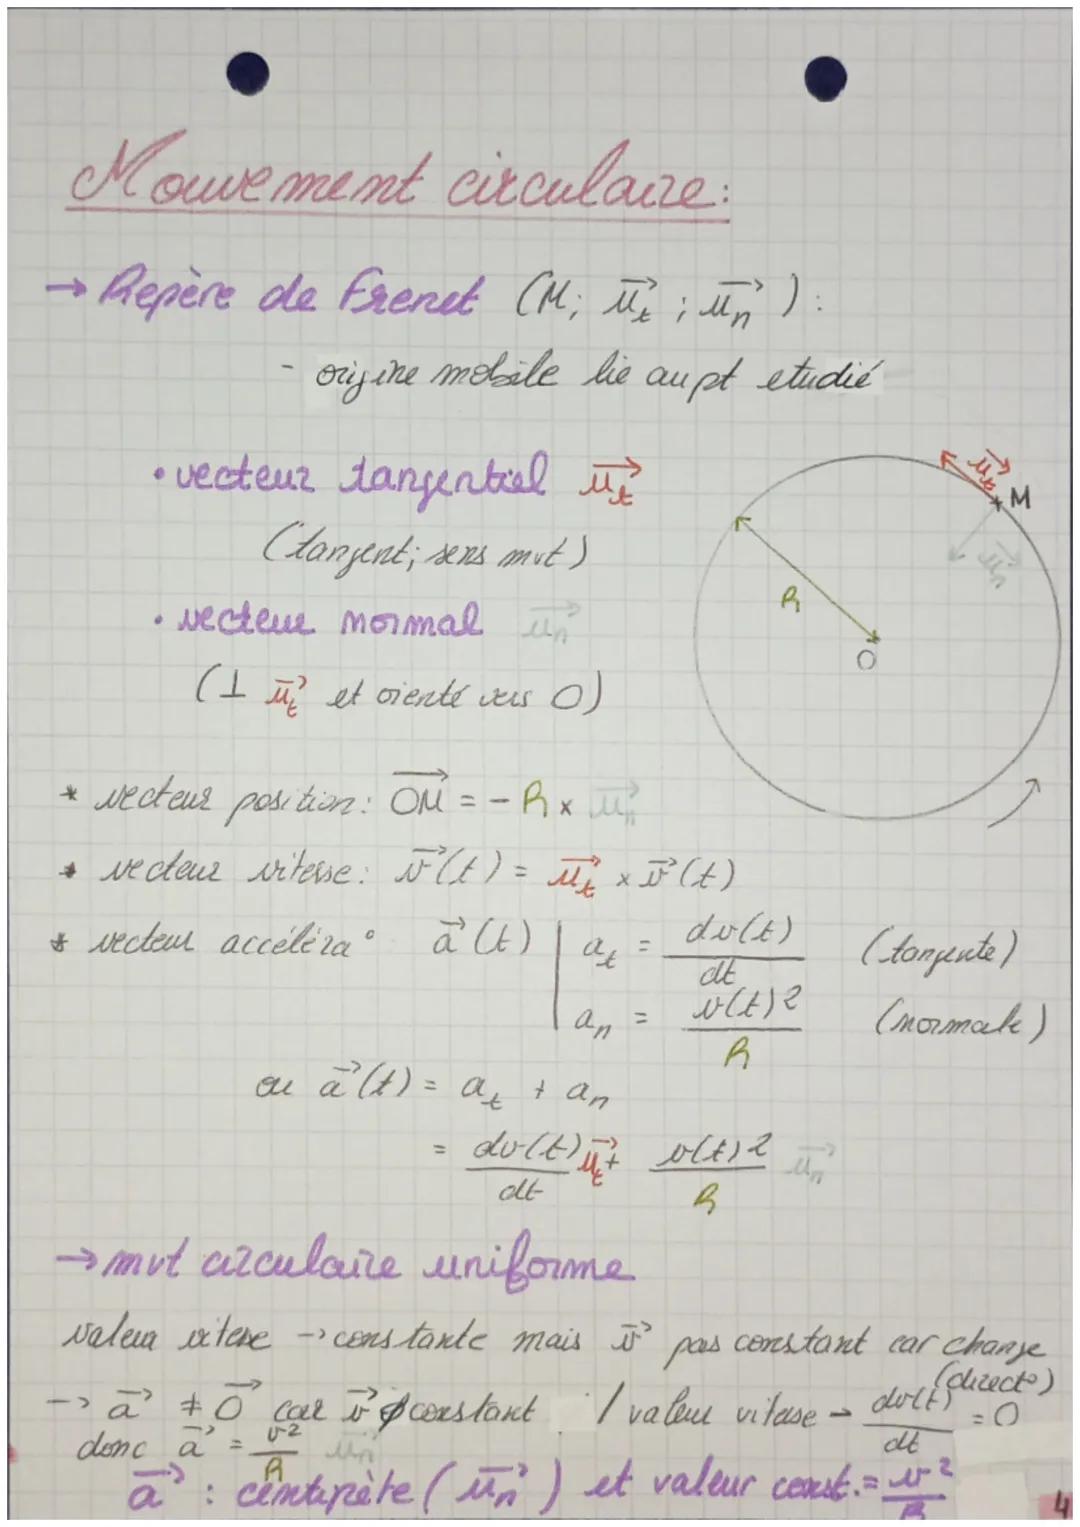 Mouvement circulaire:
→ Repère de Frenet (M; u⃗t ; u⃗n) :
- origine mobile lie au pt etudié
• vecteur tangentiel u⃗t
(tangent; sens mvt)
• vecteur normal u⃗n
(⊥ u⃗t et orienté vers O)
u⃗t
M
u⃗n
R
O
* vecteur position: OM⃗ = - R x u⃗n
* vecteur vitesse: v⃗(t) = u⃗t x v⃗(t)
* vecteur accéléra° a⃗(t) | at = dv(t)/dt (tangente)
an = v(t)2/R (normale)
ou a⃗(t) = at + an
= dv(t)/dt u⃗t + v(t)2/R u⃗n
→ mvt circulaire uniforme
valeur vitesse → constante mais v⃗ pas constant car change (directo)
→ a⃗ ≠ 0⃗ car v⃗ constant / valeur vitesse → dv(t)/dt = 0
donc a⃗ = v²/R u⃗n
a⃗ : centripète (u⃗n) et valeur const. = v²/R
4